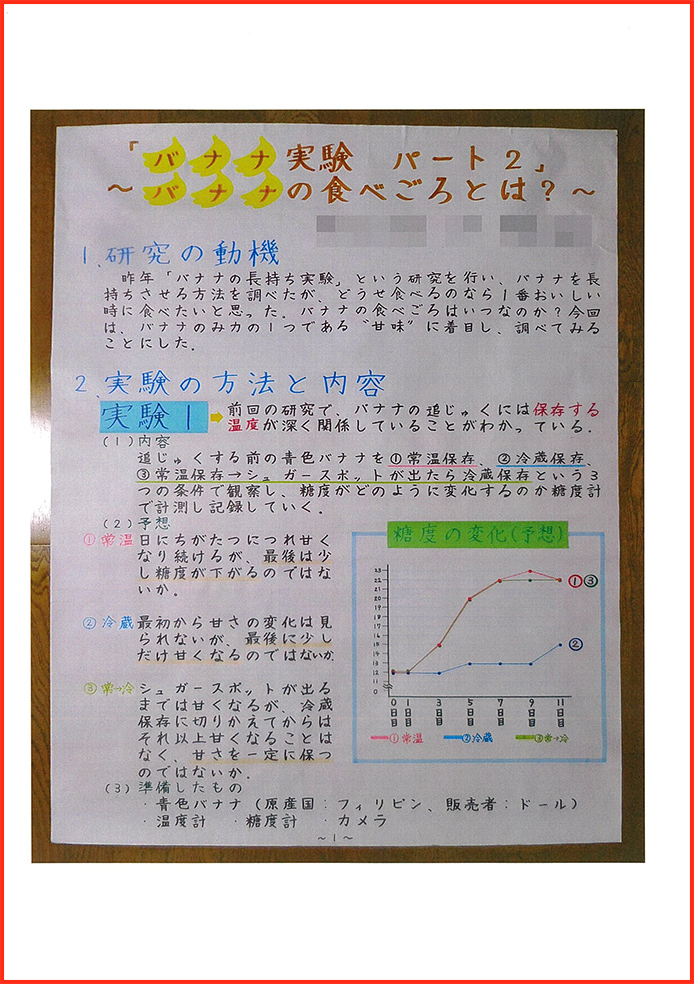 「バナナ実験 パート2」
～バナナの食べごろとは？～
1.研究の動機
昨年「バナナの長持ち実験」という研究を行い、バナナを長
持ちさせる方法を調べたが、どうせ食べるのなら1番おいしい
時に食べたいと思った。バナナの食べごろはいつなのか？今回
は、バナナのみカの1つである"甘味"に着目し、調べてみる
ことにした。
2.実験の方法と内容
実験1
前回の研究で、バナナの追じゅくには保存する
温度が深く関係していることがわかっている。
(1)内容
追じゅくする前の青色バナナを①常温保存、②冷蔵保存、
③常温保存→シュガースポットが出たら冷蔵保存という3
つの条件で観察し、糖度がどのように変化するのか糖度計
で計測し記録していく。
(2)予想
①常温 日にちがたつにつれ甘く
なり続けるが、最後は少
し糖度が下がるのではな
いか。
②冷蔵 最初から甘さの変化は見
られないが、最後に少し
だけ甘くなるのではないか
③常→冷 シュガースポットが出る
までは甘くなるが、冷蔵
保存に切りかえてからは
それ以上甘くなることは
なく、甘さを一定に保つ
のではないか。
糖度の変化(予想)
23
22
21
20
19
18
17
16
15
14
13
12
11
0
①③
②
0日目 1日目 3日目 5日目 7日目 9日目 11日目
①常温 ②冷蔵 ③常→冷
(3)準備したもの
・青色バナナ(原産国：フィリピン、販売者：ドール)
・温度計 ・糖度計 ・カメラ
～1～